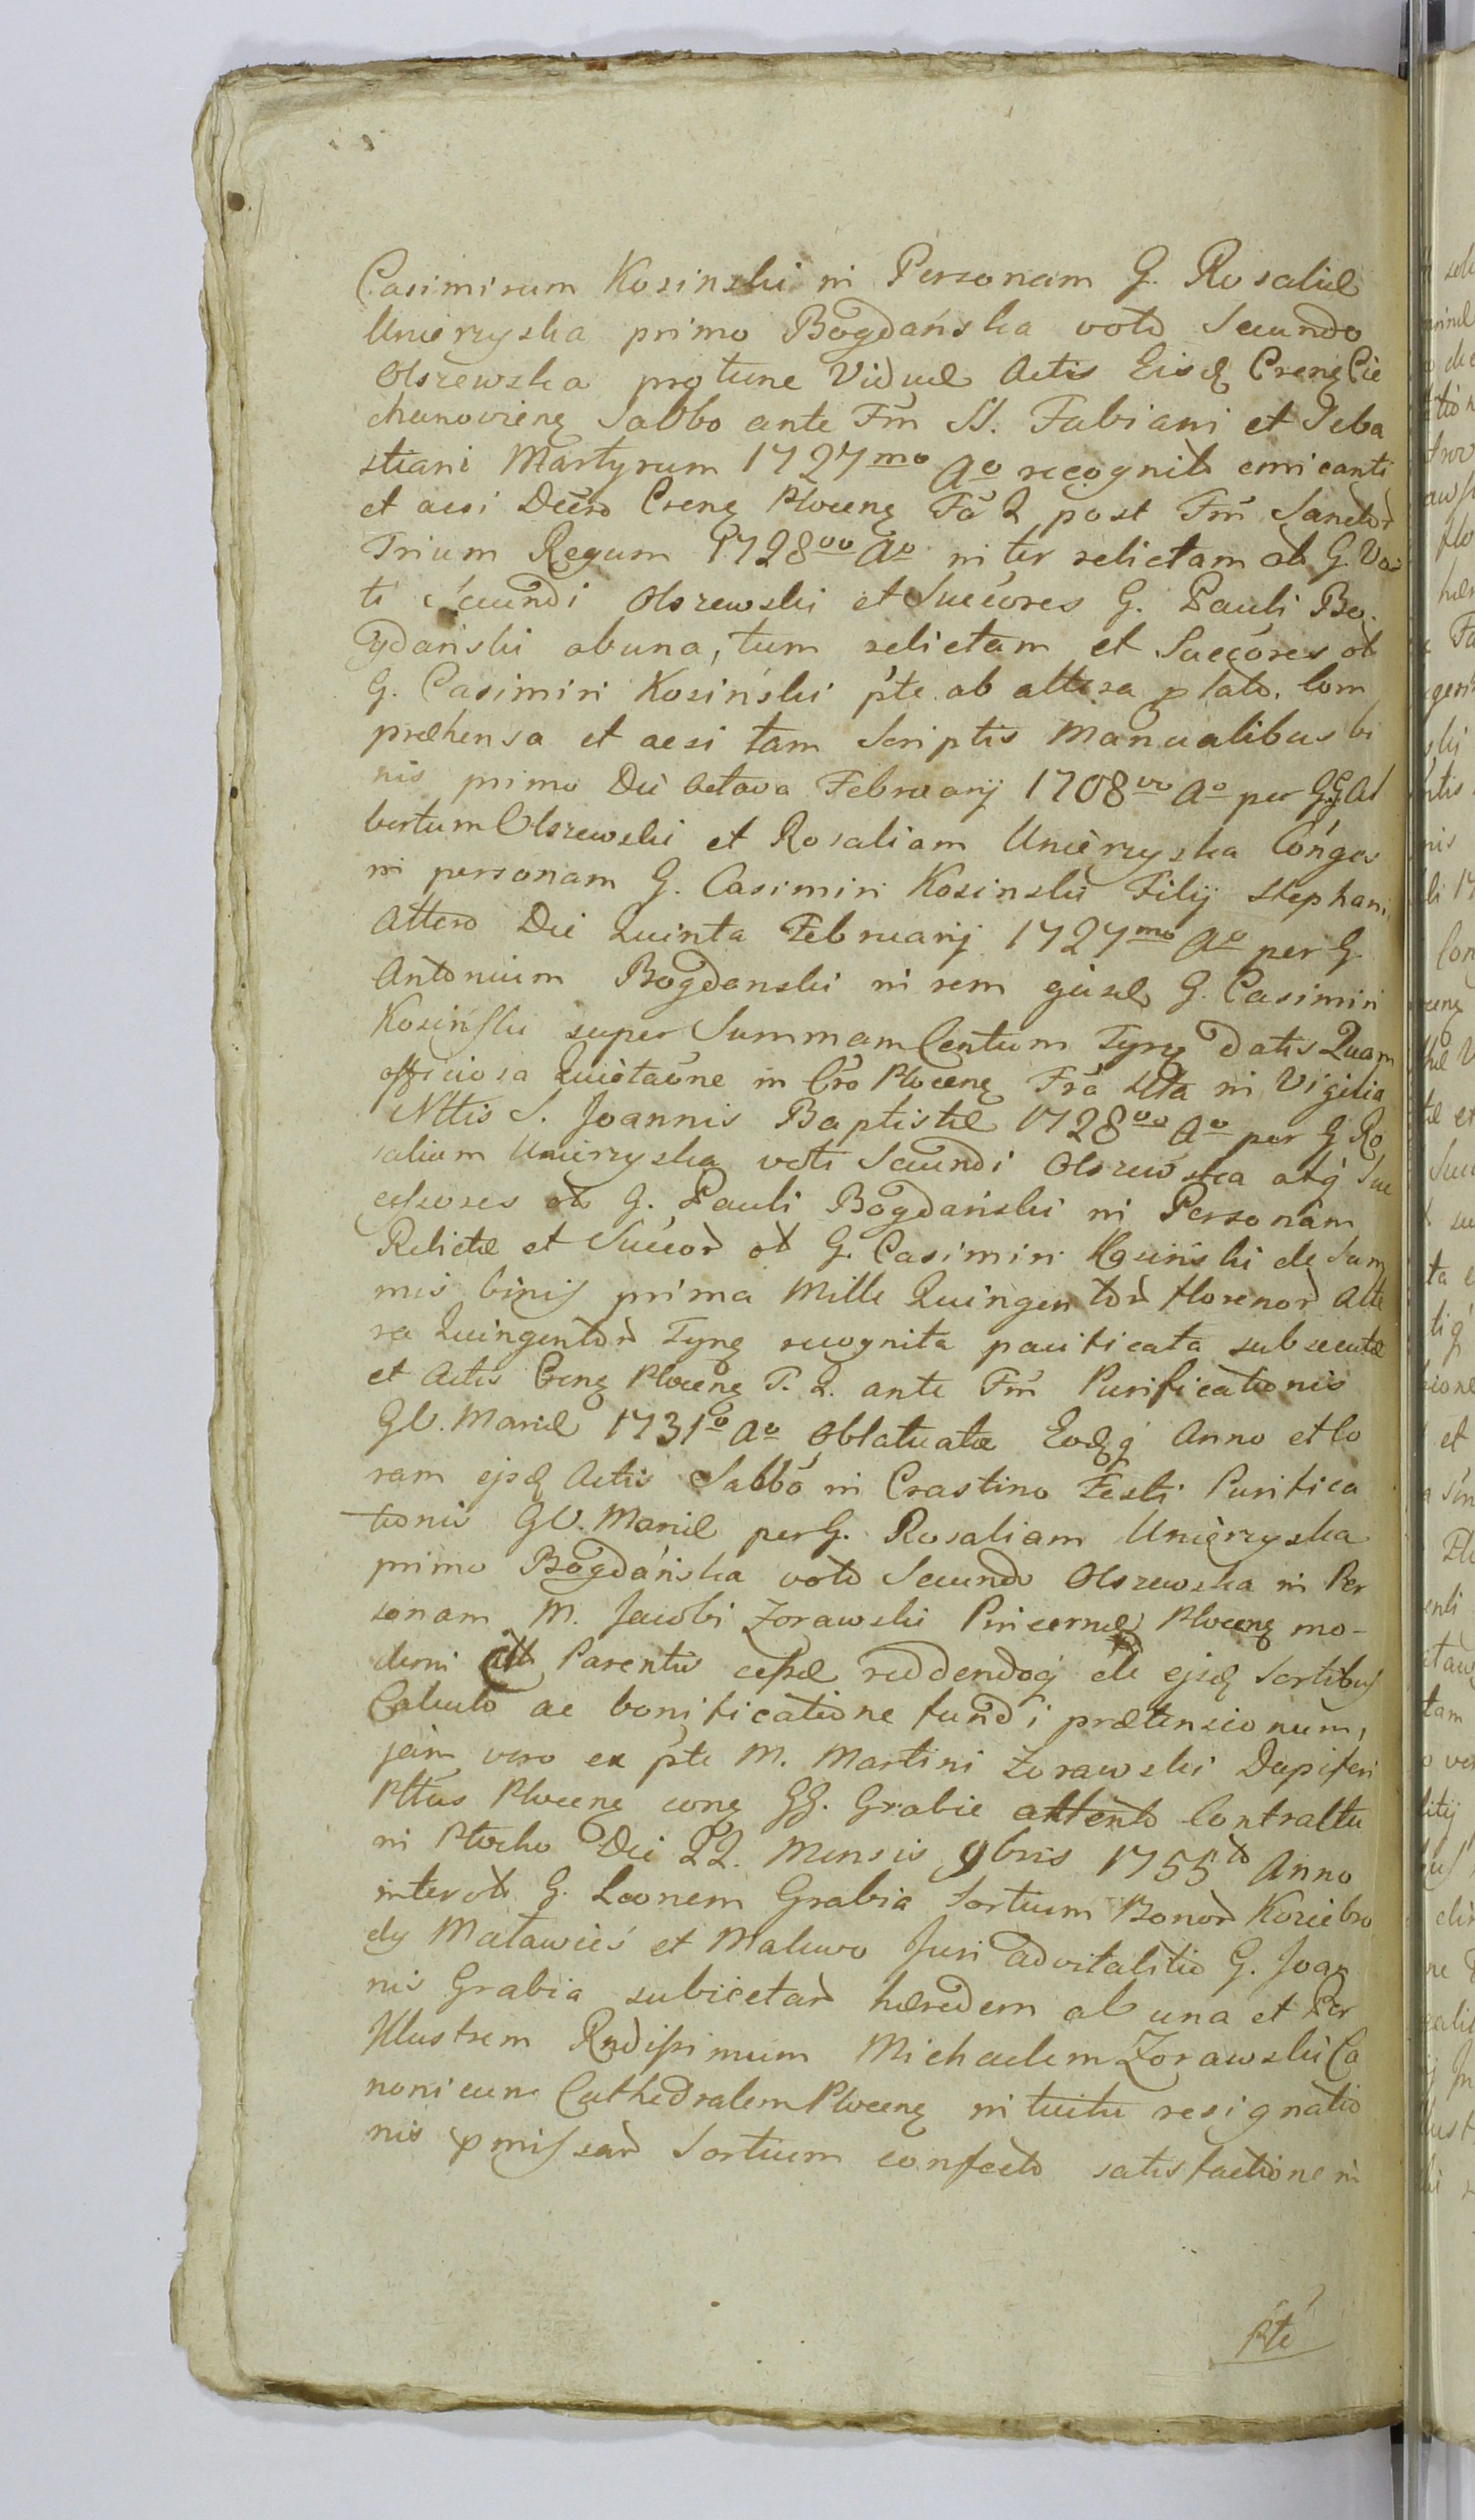 Casimirum Kosinski in Personam G. Rosaliæ
Unierzyska primo Bogdańska voto Secundo
Olszewska protunc Viduæ Actis Eisd Cren Cie
chanovien Sabbo ante Fm SS. Fabiani et Seba
stiani Martyrum 1727mo Ao recognito emicanti
et acsi Decro Cren Plocen Fa 2 post Fm Sanctor
Trium Regum 1728vo Ao inter relictam ol G. Vo
ti Secundi Olszewski et Succores G. Pauli Bo-
gdański ab una, tum relictam et Succores ol
G. Casimiri Kosiński pte ab altera lato. Com
præhensa et acsi tam Scriptis Manualibus bi
nis primo Die Octava February 1708vo Ao per GG Al
bertum Olszewski et Rosaliam Unierzyska Conges
in personam G. Casimiri Kosinski Filij Stephani
Altero Die Quinta February 1727mo Ao per G
Antonium Bogdanski in rem G. Casimiri
Kosiński super Summam Centum Tyn datis Quam
officiosa Quietaone in Cro Plocen Fra in Vigilia
Nttis S. Joannis Baptistæ 1728vo Ao per G Ro
saliam Unierzyska voti Secundi Olszewska atq Suc
cessores ol G. Pauli Bogdański in Personam
Relictæ et Succor ol G. Casimiri Kosiński de Sum
mis binis prima Mille Quingentor florenor Alte
ra Quingentor Tyn recognita pacificata subsecuta
et Actis Cren Plocen F. 2. ante Fm Purificationis
GV. Mariæ 1731o Ao Oblatuatæ Eodq Anno et Co
ram ejsd Actis Sabbo in Crastino Festi Purifica
tionis GV. Mariæ per G. Rosaliam Unierzyska
primo Bogdańska voto Secundo Olszewska in Per
sonam M. Jacobi Zorawski Pincernæ Plocen mo-
derni Parentis cessæ reddendoq de ejsd Sortibus
Calculo ac bonificatione fundi prætensionum,
jam vero ex pte M. Martini Zorawski Dapiferi
Pltus Plocen con GG. Grabie attento Contractu
in Płocko Die 22. Mensis 9bris 1755to Anno
inter ol G. Leonem Grabia Sortium Bonor Koziebro
dy Matawieś et Maluwo Juri advitalitio G. Joan
nis Grabia subiectar hæredem ab una et Per
Illustrem Rndissimum Michaelem Zorawski Ca
nonicum Cathedralem Plocen intuitu resignatio
nis pmissar Sortium confecto satisfactionem
Pte